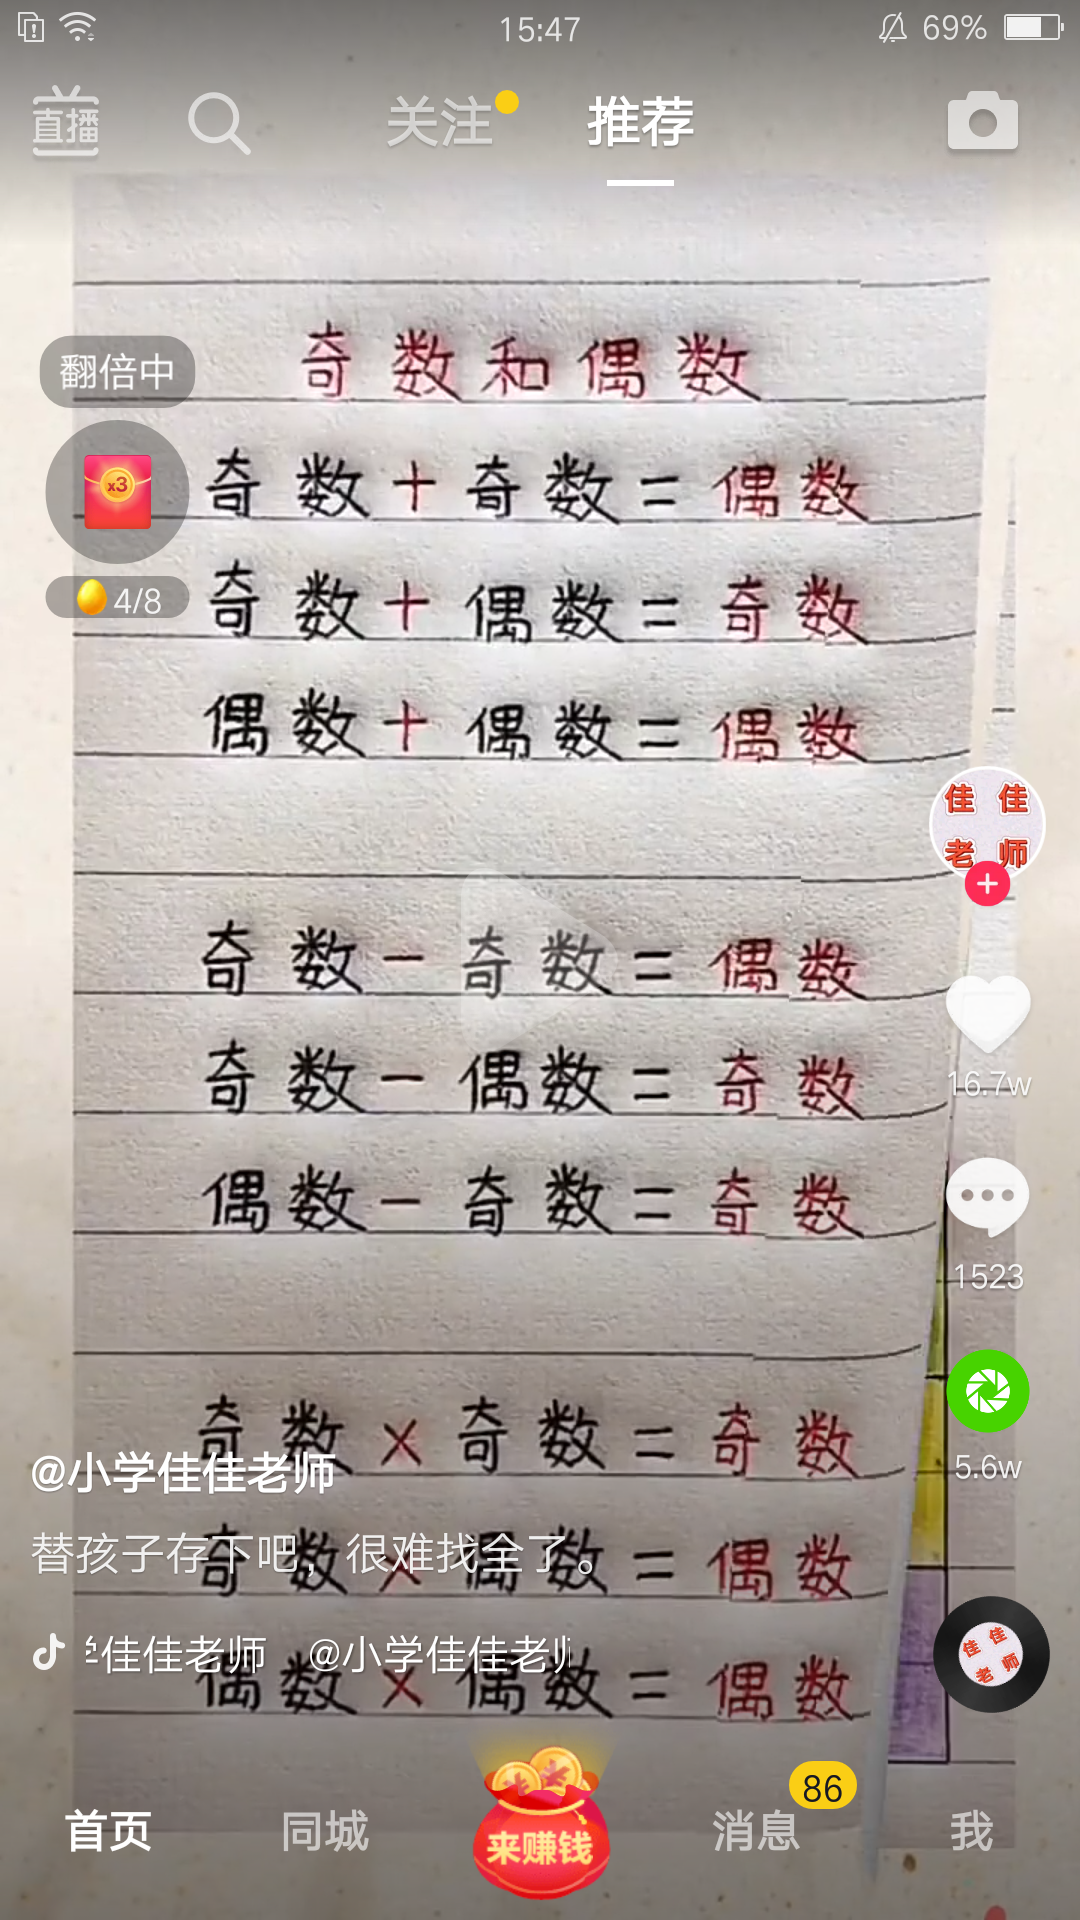 15:47
69%
直播
关注
推荐
奇数和偶数
翻倍中
奇数+奇数=偶数
x3
奇数+偶数=奇数
4/8
偶数+偶数=偶数
佳佳老师
奇数-奇数=偶数
奇数-偶数=奇数
16.7w
偶数-奇数=奇数
1523
奇数×奇数=奇数
@小学佳佳老师
5.6w
奇数×偶数=偶数
替孩子存下吧，很难找全了。
佳佳老师 @小学佳佳老师
佳佳老师
偶数×偶数=偶数
86
首页
同城
来赚钱
消息
我